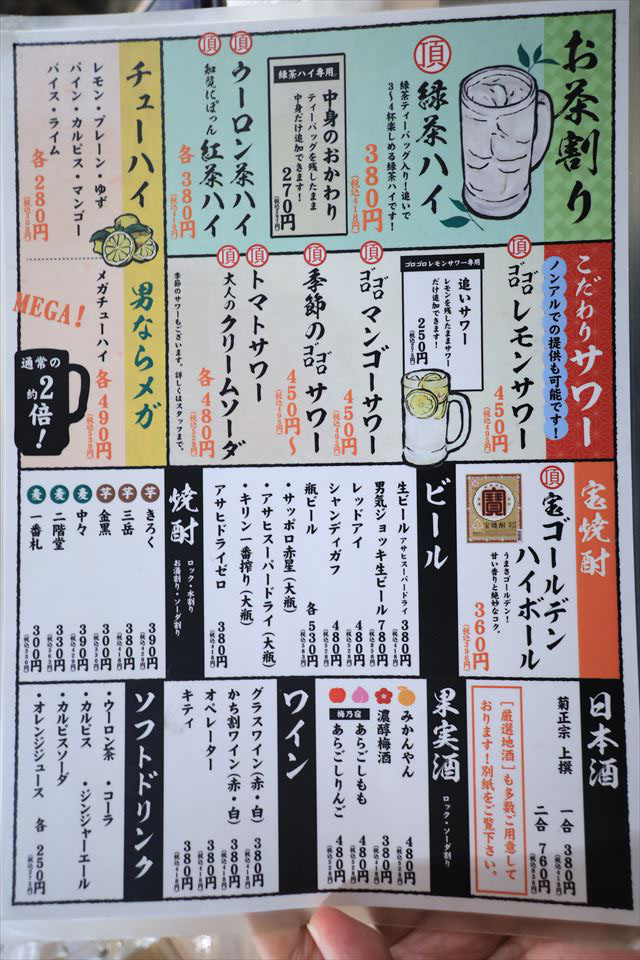 お茶割り
頂
緑茶ハイ
緑茶ティーバッグ入り!追いで
3〜4杯楽しめる緑茶ハイです!
380円
(税込418円)
緑茶ハイ専用
中身のおかわり
ティーバッグを残したまま
中身だけ追加できます!
270円
(税込297円)
頂
ウーロン茶ハイ
頂
知覧にっぽん紅茶ハイ
各380円
(税込418円)
チューハイ
レモン・プレーン・ゆず
パイン・カルピス・マンゴー
バイス・ライム
各280円
男ならメガ
メガチューハイ
各490円
(税込539円)
MEGA!
通常の
約2倍!
こだわりサワー
ノンアルでの提供も可能です!
頂
ゴロゴロレモンサワー
450円
(税込495円)
ゴロゴロレモンサワー専用
追いサワー
レモンを残したままサワー
だけ追加できます!
250円
(税込275円)
頂
ゴロゴロマンゴーサワー
450円
(税込495円)
頂
季節のゴロゴロサワー
450円〜
(税込495円)
頂
トマトサワー
頂
大人のクリームソーダ
各480円
(税込528円)
季節のサワーもございます。詳しくはスタッフまで。
宝焼酎
頂
宝ゴールデン
ハイボール
うまさゴールデン!
甘い香りと絶妙なコク。
360円
(税込396円)
寶
宝焼酎
ビール
生ビール アサヒスーパードライ 380円
(税込418円)
男気ジョッキ生ビール 780円
(税込858円)
レッドアイ 480円
(税込528円)
シャンディガフ 480円
(税込528円)
瓶ビール 各530円
(税込583円)
・サッポロ赤星(大瓶)
・アサヒスーパードライ(大瓶)
・キリン一番搾り(大瓶)
アサヒドライゼロ 380円
(税込418円)
焼酎
ロック・水割り
お湯割り・ソーダ割り
芋 きろく 390円
(税込429円)
芋 三岳 380円
(税込418円)
芋 金黒 300円
(税込330円)
麦 中々 390円
(税込429円)
麦 二階堂 330円
(税込363円)
麦 一番札 300円
(税込330円)
日本酒
菊正宗 上撰 一合 380円
(税込418円)
二合 760円
(税込836円)
「厳選地酒」も多数ご用意して
おります!別紙をご覧下さい。
果実酒
ロック・ソーダ割り
みかんやん 480円
(税込528円)
濃醇梅酒 380円
(税込418円)
梅乃宿
あらごしもも 480円
(税込528円)
あらごしりんご 480円
(税込528円)
ワイン
グラスワイン(赤・白) 380円
(税込418円)
かち割ワイン(赤・白) 380円
(税込418円)
オペレーター 380円
(税込418円)
キティ 380円
(税込418円)
ソフトドリンク
・ウーロン茶 ・コーラ
・カルピス ・ジンジャーエール
・カルピスソーダ
・オレンジジュース 各250円
(税込275円)